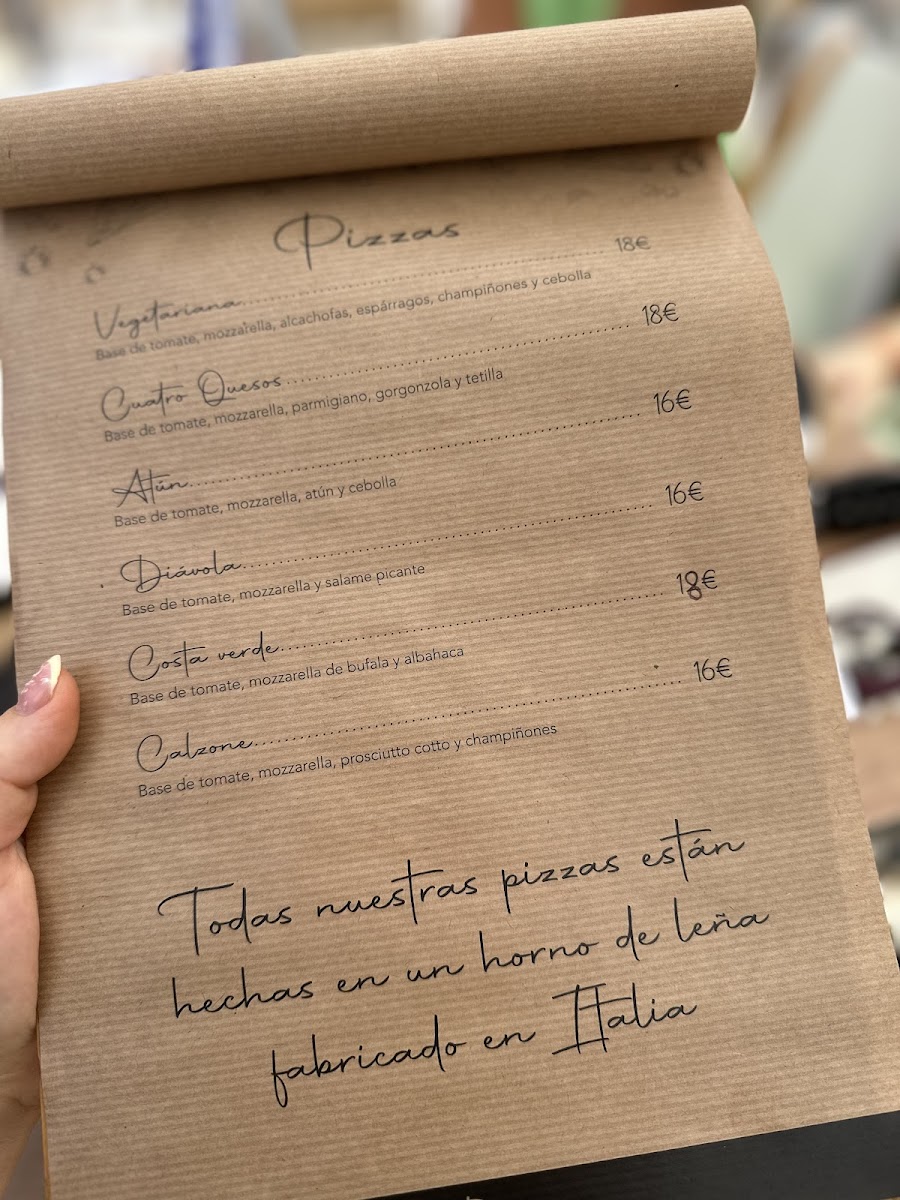 Pizzas
Vegetariana........................ 18€
Base de tomate, mozzarella, alcachofas, espárragos, champiñones y cebolla
Cuatro Quesos........................ 18€
Base de tomate, mozzarella, parmigiano, gorgonzola y tetilla
Atún........................ 16€
Base de tomate, mozzarella, atún y cebolla
Diávola........................ 16€
Base de tomate, mozzarella y salame picante
Costa verde........................ 18€
Base de tomate, mozzarella de bufala y albahaca
Calzone........................ 16€
Base de tomate, mozzarella, prosciutto cotto y champiñones
Todas nuestras pizzas están
hechas en un horno de leña
fabricado en Italia